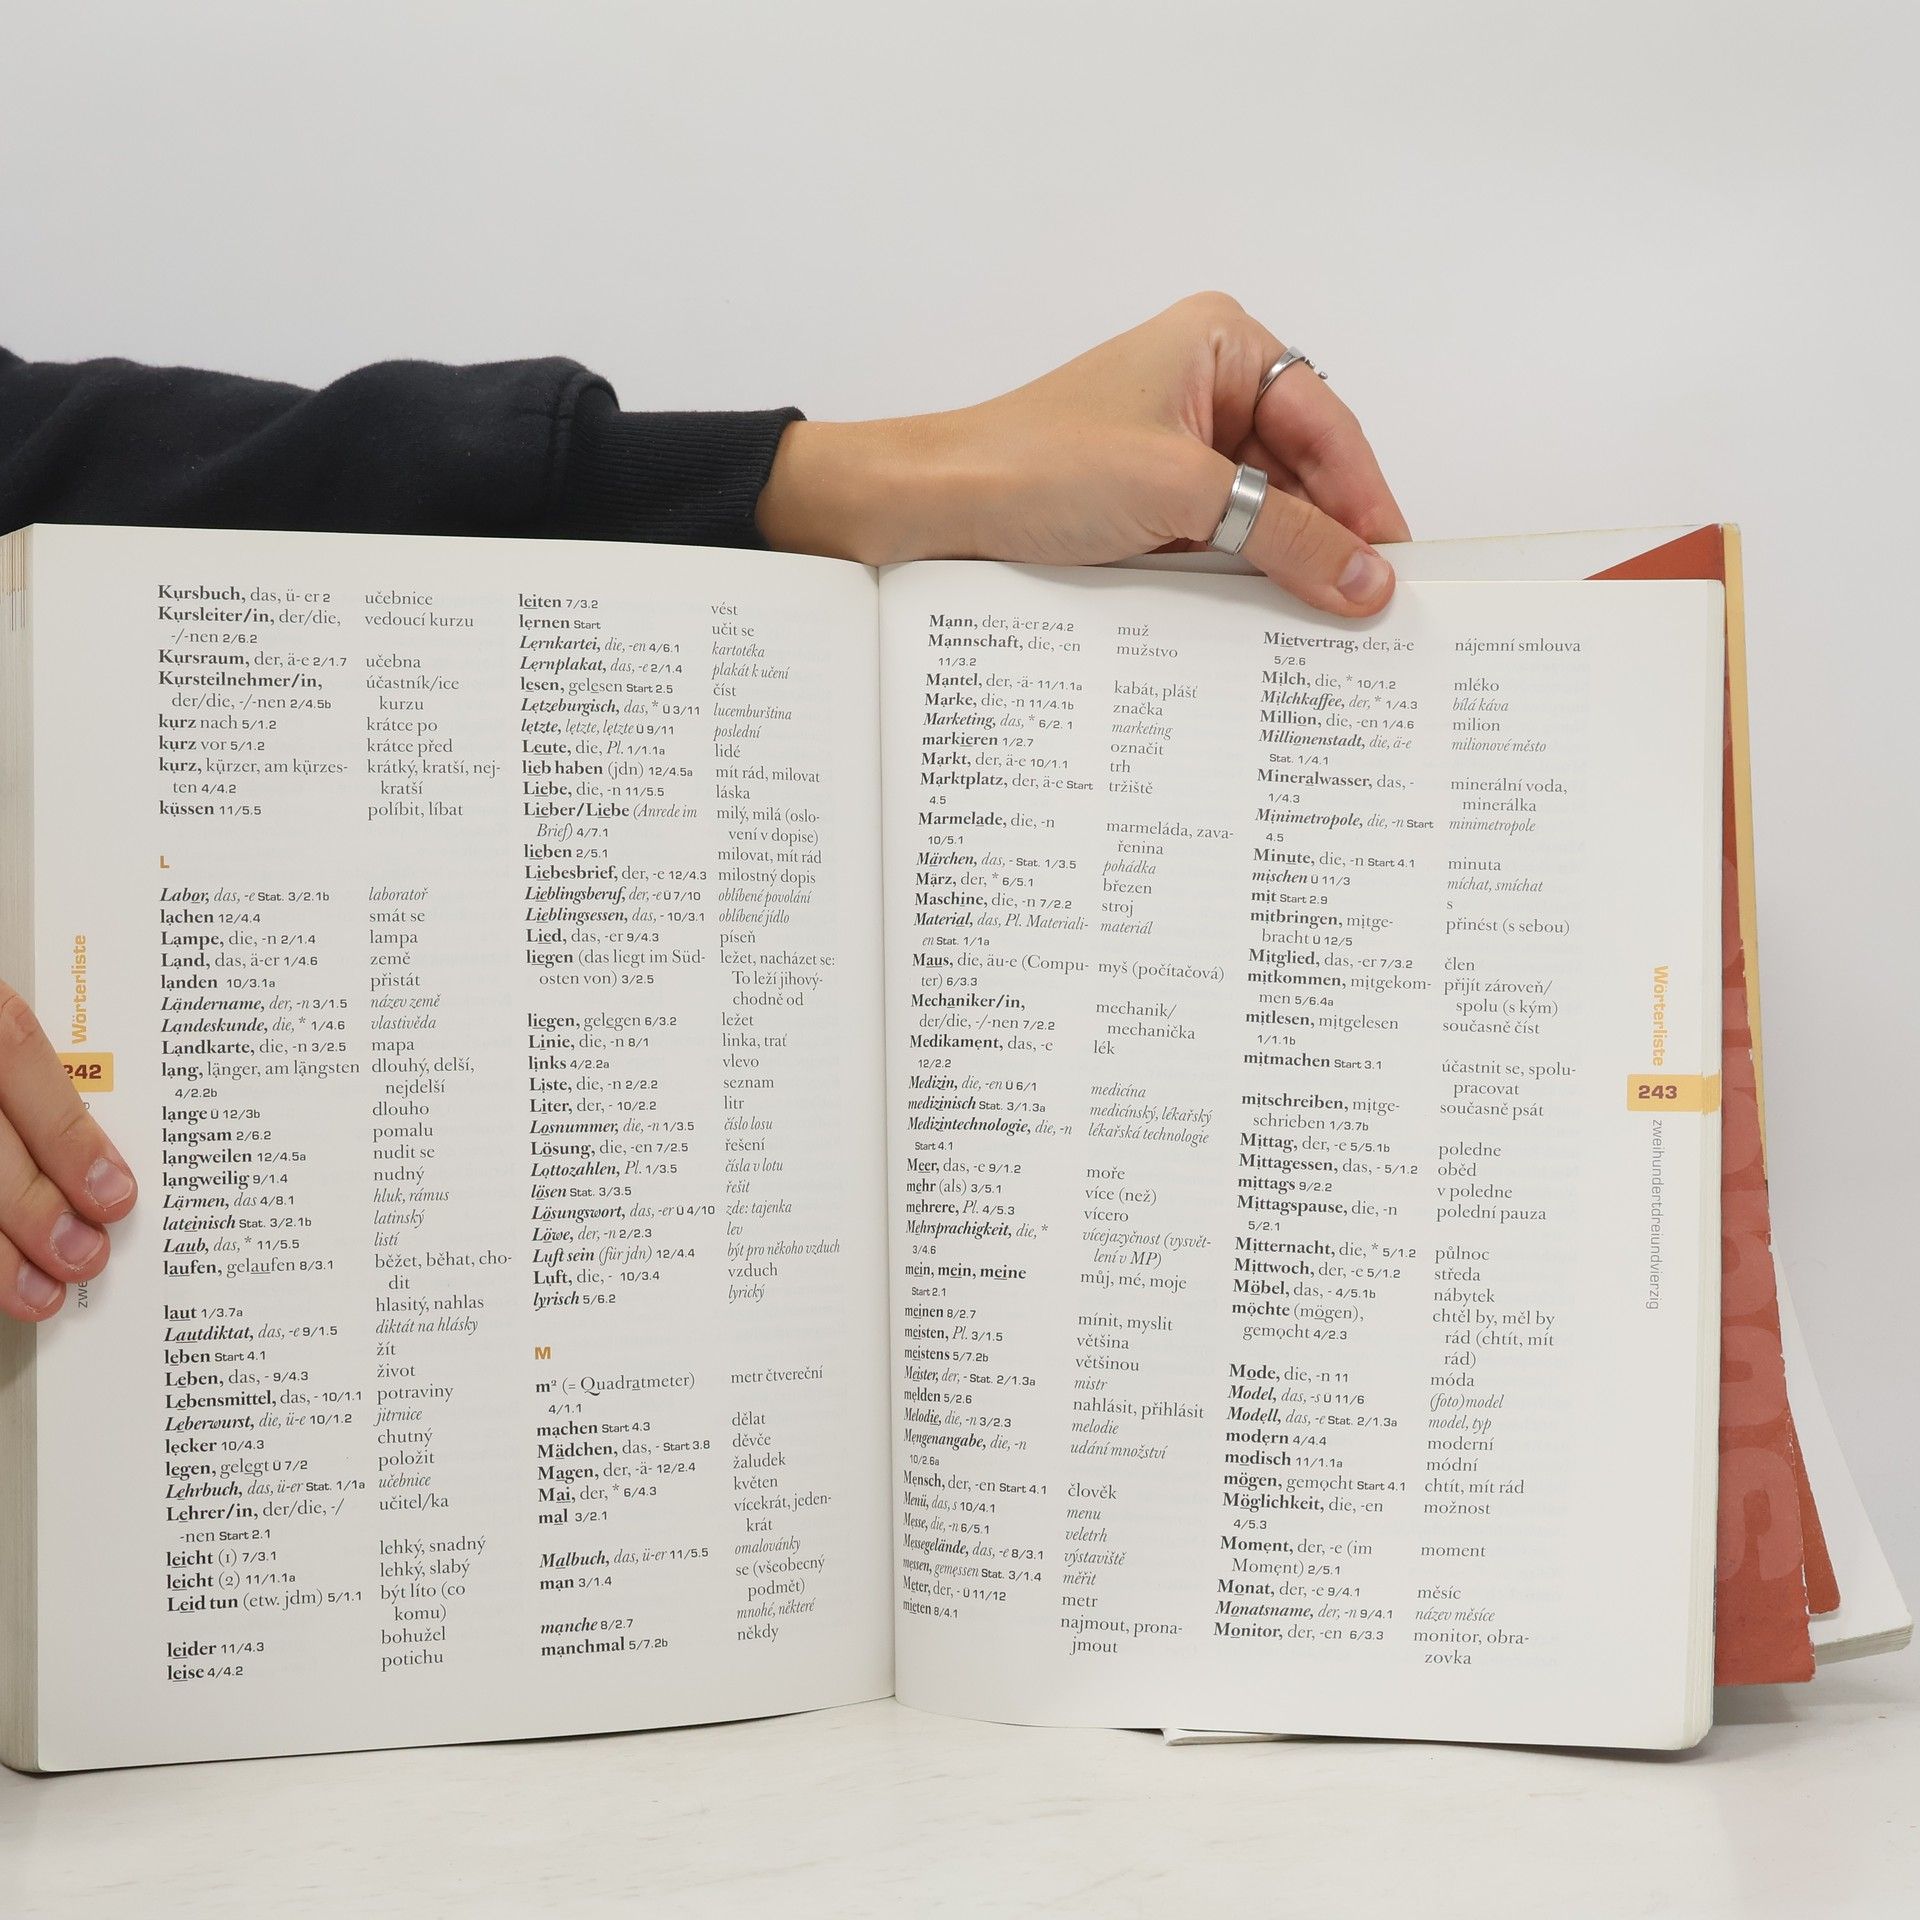 Kursbuch, das, ü- er 2 učebnice
Kursleiter/in, der/die, vedoucí kurzu
-/-nen 2/6.2
Kursraum, der, ä-e 2/1.7 učebna
Kursteilnehmer/in, účastník/ice
der/die, -/-nen 2/4.5b kurzu
kurz nach 5/1.2 krátce po
kurz vor 5/1.2 krátce před
kurz, kürzer, am kürzes- krátký, kratší, nej-
ten 4/4.2 kratší
küssen 11/5.5 políbit, líbat
L
Labor, das, -e Stat. 3/2.1b laboratoř
lachen 12/4.4 smát se
Lampe, die, -n 2/1.4 lampa
Land, das, ä-er 1/4.6 země
landen 10/3.1a přistát
Ländername, der, -n 3/1.5 název země
Landeskunde, die, * 1/4.6 vlastivěda
Landkarte, die, -n 3/2.5 mapa
lang, länger, am längsten dlouhý, delší,
4/2.2b nejdelší
lange Ü 12/3b dlouho
langsam 2/6.2 pomalu
langweilen 12/4.5a nudit se
langweilig 9/1.4 nudný
Lärmen, das 4/8.1 hluk, rámus
lateinisch Stat. 3/2.1b latinský
Laub, das, * 11/5.5 listí
laufen, gelaufen 8/3.1 běžet, běhat, cho-
dit
laut 1/3.7a hlasitý, nahlas
Lautdiktat, das, -e 9/1.5 diktát na hlásky
leben Start 4.1 žít
Leben, das, - 9/4.3 život
Lebensmittel, das, - 10/1.1 potraviny
Leberwurst, die, ü-e 10/1.2 jitrnice
lecker 10/4.3 chutný
legen, gelegt Ü 7/2 položit
Lehrbuch, das, ü-er Stat. 1/1a učebnice
Lehrer/in, der/die, -/ učitel/ka
-nen Start 2.1
leicht (1) 7/3.1 lehký, snadný
leicht (2) 11/1.1a lehký, slabý
Leid tun (etw. jdm) 5/1.1 být líto (co
komu)
leider 11/4.3 bohužel
leise 4/4.2 potichu
leiten 7/3.2 vést
lernen Start učit se
Lernkartei, die, -en 4/6.1 kartotéka
Lernplakat, das, -e 2/1.4 plakát k učení
lesen, gelesen Start 2.5 číst
Letzeburgisch, das, * Ü 3/11 lucemburština
letzte, letzte, letzte Ü 9/11 poslední
Leute, die, Pl. 1/1.1a lidé
lieb haben (jdn) 12/4.5a mít rád, milovat
Liebe, die, -n 11/5.5 láska
Lieber/Liebe (Anrede im milý, milá (oslo-
Brief) 4/7.1 vení v dopise)
lieben 2/5.1 milovat, mít rád
Liebesbrief, der, -e 12/4.3 milostný dopis
Lieblingsberuf, der, -e Ü 7/10 oblíbené povolání
Lieblingsessen, das, - 10/3.1 oblíbené jídlo
Lied, das, -er 9/4.3 píseň
liegen (das liegt im Süd- ležet, nacházet se:
osten von) 3/2.5 To leží jihový-
chodně od
liegen, gelegen 6/3.2 ležet
Linie, die, -n 8/1 linka, trať
links 4/2.2a vlevo
Liste, die, -n 2/2.2 seznam
Liter, der, - 10/2.2 litr
Losnummer, die, -n 1/3.5 číslo losu
Lösung, die, -en 7/2.5 řešení
Lottozahlen, Pl. 1/3.5 čísla v lotu
lösen Stat. 3/3.5 řešit
Lösungswort, das, -er Ü 4/10 zde: tajenka
Löwe, der, -n 2/2.3 lev
Luft sein (für jdn) 12/4.4 být pro někoho vzduch
Luft, die, - 10/3.4 vzduch
lyrisch 5/6.2 lyrický
M
m² (= Quadratmeter) metr čtvereční
4/1.1
machen Start 4.3 dělat
Mädchen, das, - Start 3.8 děvče
Magen, der, -ä- 12/2.4 žaludek
Mai, der, * 6/4.3 květen
mal 3/2.1 vícekrát, jeden-
krát
Malbuch, das, ü-er 11/5.5 omalovánky
man 3/1.4 se (všeobecný
podmět)
manche 8/2.7 mnohé, některé
manchmal 5/7.2b někdy
Wörterliste
242
Mann, der, ä-er 2/4.2 muž
Mannschaft, die, -en mužstvo
11/3.2
Mantel, der, -ä- 11/1.1a kabát, plášť
Marke, die, -n 11/4.1b značka
Marketing, das, * 6/2.1 marketing
markieren 1/2.7 označit
Markt, der, ä-e 10/1.1 trh
Marktplatz, der, ä-e Start tržiště
4.5
Marmelade, die, -n marmeláda, zava-
10/5.1 řenina
Märchen, das, - Stat. 1/3.5 pohádka
März, der, * 6/5.1 březen
Maschine, die, -n 7/2.2 stroj
Material, das, Pl. Materiali- materiál
en Stat. 1/1a
Maus, die, äu-e (Compu- myš (počítačová)
ter) 6/3.3
Mechaniker/in, mechanik/
der/die, -/-nen 7/2.2 mechanička
Medikament, das, -e lék
12/2.2
Medizin, die, -en Ü 6/1 medicína
medizinisch Stat. 3/1.3a medicínský, lékařský
Medizintechnologie, die, -n lékařská technologie
Start 4.1
Meer, das, -e 9/1.2 moře
mehr (als) 3/5.1 více (než)
mehrere, Pl. 4/5.3 vícero
Mehrsprachigkeit, die, * vícejazyčnost (vysvět-
3/4.6 lení v MP)
mein, mein, meine můj, mé, moje
Start 2.1
meinen 8/2.7 mínit, myslit
meisten, Pl. 3/1.5 většina
meistens 5/7.2b většinou
Meister, der, - Stat. 2/1.3a mistr
melden 5/2.6 nahlásit, přihlásit
Melodie, die, -n 3/2.3 melodie
Mengenangabe, die, -n udání množství
10/2.6a
Mensch, der, -en Start 4.1 člověk
Menü, das, s 10/4.1 menu
Messe, die, -n 6/5.1 veletrh
Messegelände, das, -e 8/3.1 výstaviště
messen, gemessen Stat. 3/1.4 měřit
Meter, der, - Ü 11/12 metr
mieten 8/4.1 najmout, prona-
jmout
Mietvertrag, der, ä-e nájemní smlouva
5/2.6
Milch, die, * 10/1.2 mléko
Milchkaffee, der, * 1/4.3 bílá káva
Million, die, -en 1/4.6 milion
Millionenstadt, die, ä-e milionové město
Stat. 1/4.1
Mineralwasser, das, - minerální voda,
1/4.3 minerálka
Minimetropole, die, -n Start minimetropole
4.5
Minute, die, -n Start 4.1 minuta
mischen Ü 11/3 míchat, smíchat
mit Start 2.9 s
mitbringen, mitge- přinést (s sebou)
bracht Ü 12/5
Mitglied, das, -er 7/3.2 člen
mitkommen, mitgekom- přijít zároveň/
men 5/6.4a spolu (s kým)
mitlesen, mitgelesen současně číst
1/1.1b
mitmachen Start 3.1 účastnit se, spolu-
pracovat
mitschreiben, mitge- současně psát
schrieben 1/3.7b
Mittag, der, -e 5/5.1b poledne
Mittagessen, das, - 5/1.2 oběd
mittags 9/2.2 v poledne
Mittagspause, die, -n polední pauza
5/2.1
Mitternacht, die, * 5/1.2 půlnoc
Mittwoch, der, -e 5/1.2 středa
Möbel, das, - 4/5.1b nábytek
möchte (mögen), chtěl by, měl by
gemocht 4/2.3 rád (chtít, mít
rád)
Mode, die, -n 11 móda
Model, das, -s Ü 11/6 (foto)model
Modell, das, -e Stat. 2/1.3a model, typ
modern 4/4.4 moderní
modisch 11/1.1a módní
mögen, gemocht Start 4.1 chtít, mít rád
Möglichkeit, die, -en možnost
4/5.3
Moment, der, -e (im moment
Moment) 2/5.1
Monat, der, -e 9/4.1 měsíc
Monatsname, der, -n 9/4.1 název měsíce
Monitor, der, -en 6/3.3 monitor, obra-
zovka
Wörterliste
243
zweihundertdreiundvierzig